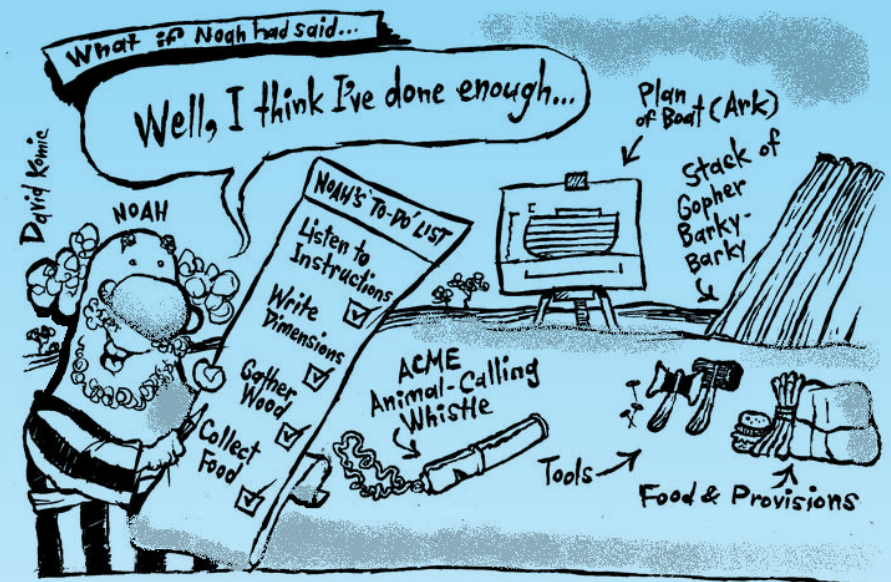 What if Noah had said...
Well, I think I've done enough...
David Komie
NOAH
NOAH'S 'TO-DO' LIST
Listen to
Instructions
Write
Dimensions
Gather
Wood
Collect
Food
Plan
of Boat (Ark)
Stack of
Gopher
Barky-
Barky
ACME
Animal-Calling
Whistle
Tools
Food & Provisions